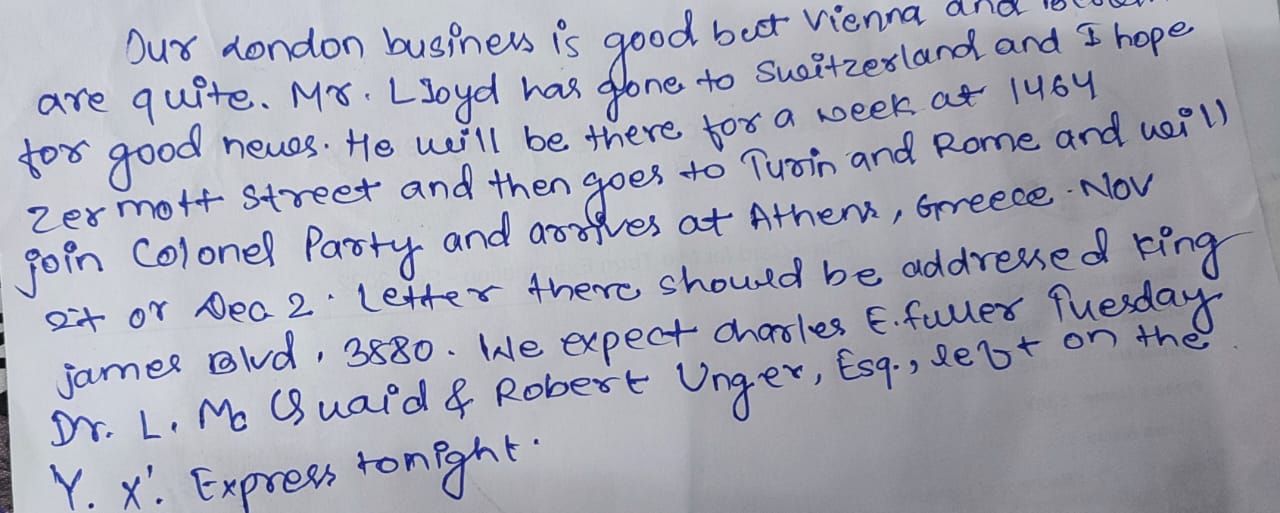 Our London business is good but Vienna and
are quite. Mr. Lloyd has gone to Switzerland and I hope
for good news. He will be there for a week at 1464
Zermott Street and then goes to Turin and Rome and will
join Colonel Party and arrives at Athens, Greece. Nov
or Dec 2. Letter there should be addressed King
james Blvd, 3880. We expect charles E. fuller Tuesday
Dr. L. Mc Quaid & Robert Unger, Esq., left on the
Y. X'. Express tonight.